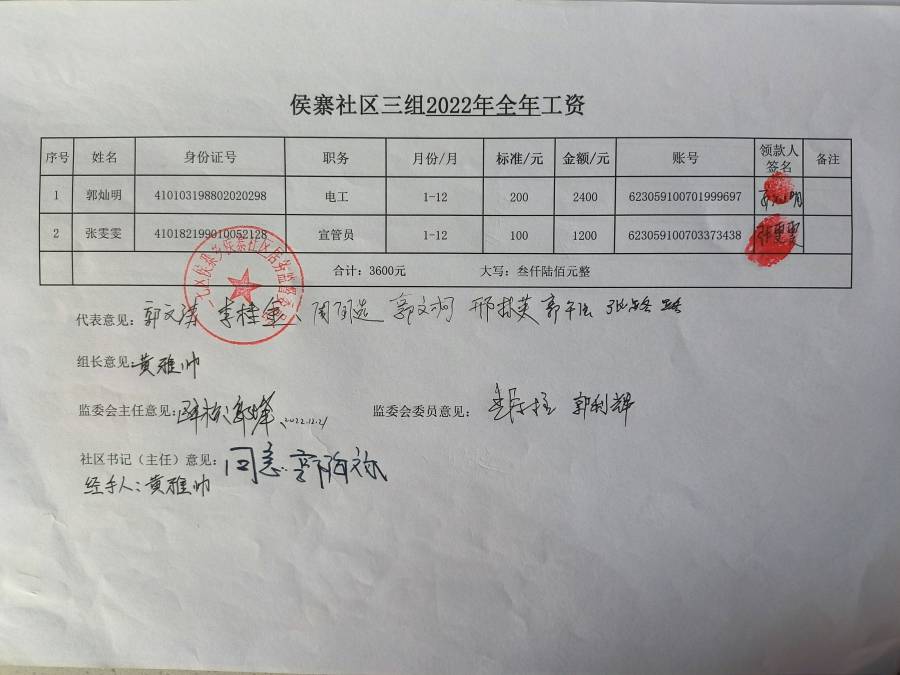 侯寨社区三组2022年全年工资
序号 姓名 身份证号 职务 月份/月 标准/元 金额/元 账号 领款人签名 备注
1 郭灿明 410103198802020298 电工 1-12 200 2400 623059100701999697
2 张雯雯 410182199010052128 宣管员 1-12 100 1200 623059100703373438 张雯雯
合计：3600元 大写：叁仟陆佰元整
二七区侯寨乡侯寨社区居务监督委员会
代表意见： 李桂 郭文 邢 英 郭 张
组长意见：黄雅帅
监委会主任意见： 郭 2022.12.21 监委会委员意见： 郭利辉
社区书记（主任）意见：同意 郭
经手人：黄雅帅